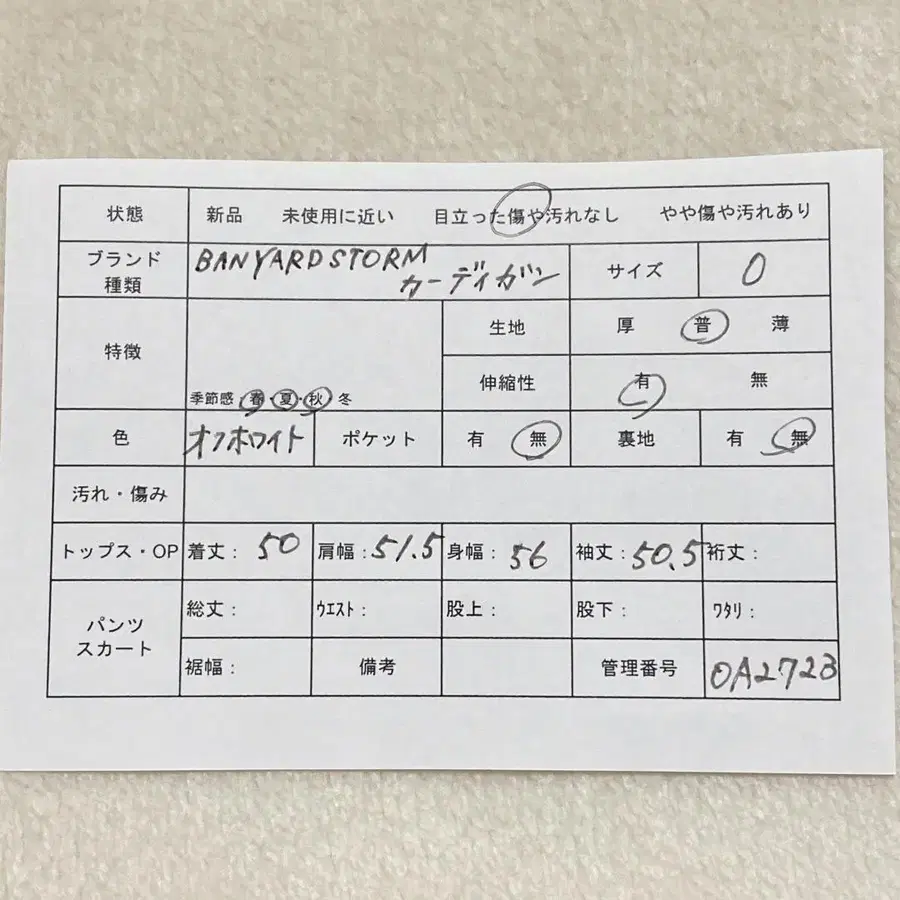 状態 新品 未使用に近い 目立った傷や汚れなし やや傷や汚れあり
ブランド 種類 BANYARDSTORM カーディガン サイズ 0
特徴 生地 厚 普 薄
伸縮性 有 無
季節感 春・夏・秋 冬
色 オフホワイト ポケット 有 無 裏地 有 無
汚れ・傷み
トップス・OP 着丈: 50 肩幅: 51.5 身幅: 56 袖丈: 50.5 裄丈:
パンツ スカート 総丈: ウエスト: 股上: 股下: ワタリ:
裾幅: 備考 管理番号 OA2723